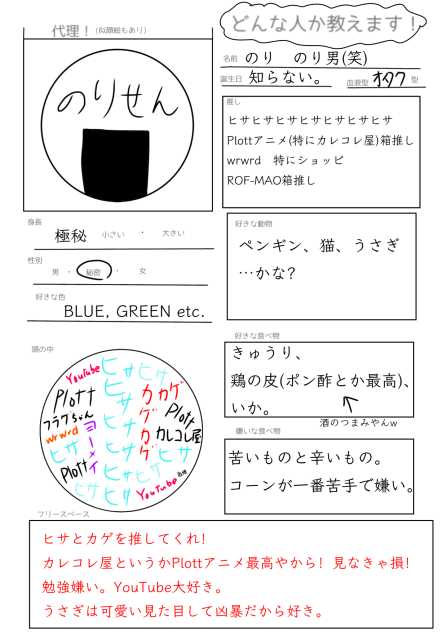 代理！(似顔絵もあり)
どんな人か教えます！
のりせん
名前 のり のり男(笑)
誕生日 知らない。 血液型 オタク 型
推し
ヒサヒサヒサヒサヒサヒサヒサ
Plottアニメ(特にカレコレ屋)箱推し
wrwrd 特にショッピ
ROF-MAO箱推し
身長
極秘 小さい ・ 大きい
性別
男 ・ 秘密 ・ 女
好きな色
BLUE, GREEN etc.
好きな動物
ペンギン、猫、うさぎ
…かな?
好きな食べ物
きゅうり、
鶏の皮(ポン酢とか最高)、
いか。
酒のつまみやんw
嫌いな食べ物
苦いものと辛いもの。
コーンが一番苦手で嫌い。
頭の中
YouTube ヒサ ヒサ
Plott ヒサ カゲ カゲ
フラグちゃん ヒサ Plott
wrwrd ヨーメイ ヒサ カゲ カレコレ屋
ヒサ ヒサ ヒサ
Plott ヒサ ヒサ
ヒサ ヒサ YouTube
フリースペース
ヒサとカゲを推してくれ!
カレコレ屋というかPlottアニメ最高やから! 見なきゃ損!
勉強嫌い。YouTube大好き。
うさぎは可愛い見た目して凶暴だから好き。